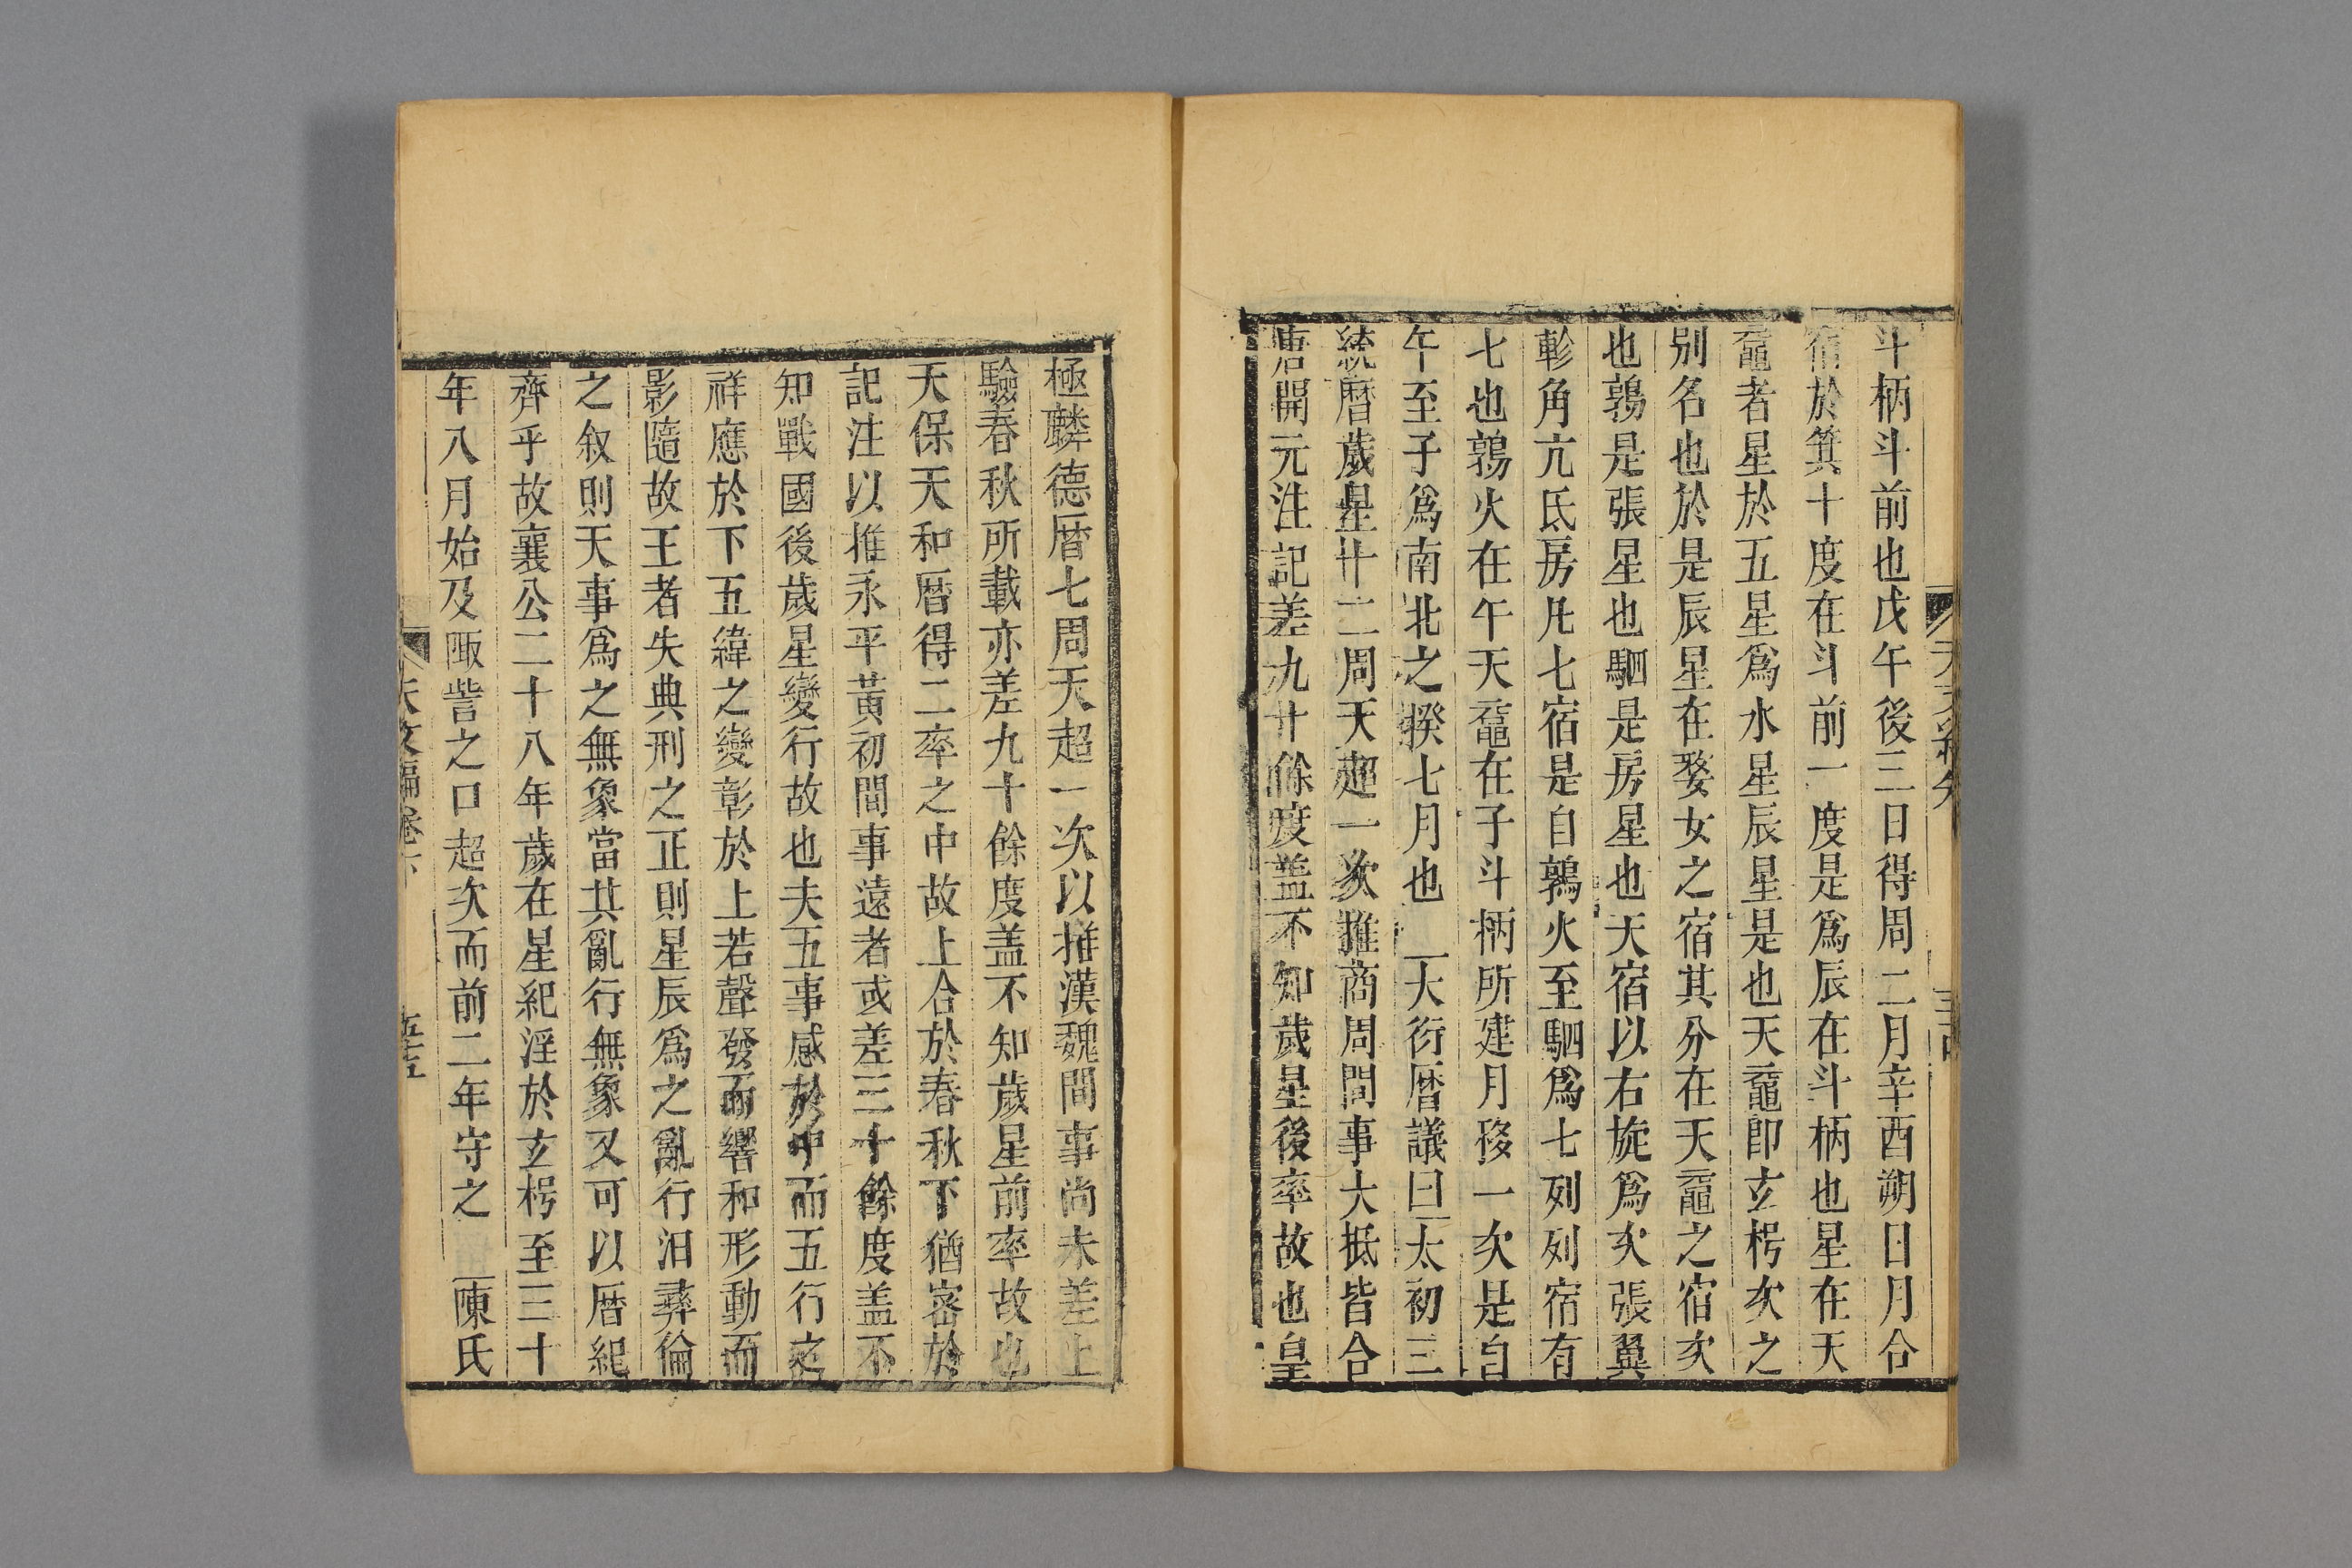 斗柄斗前也戊午後三日得周二月辛酉朔日月合
宿於箕十度在斗前一度是爲辰在斗柄也星在天
黿者星於五星爲水星辰星是也天黿卽玄枵次之
别名也於是辰星在婺女之宿其分在天黿之宿次
也鶉是張星也駟是房星也天宿以右旋爲次張翼
軫角亢氐房凡七宿是自鶉火至駟爲七列列宿有
七也鶉火在午天黿在子斗柄所建月移一次是自
午至子爲南北之揆七月也　大衍曆議曰太初三
統曆歲星十二周天超一次推商周間事大抵皆合
唐開元注記差九十餘度盖不知歲星後率故也皇
極麟德曆七周天超一次以推漢魏間事尚未差上
驗春秋所載亦差九十餘度盖不知歲星前率故也
天保天和曆得二率之中故上合於春秋下猶宻於
記注以推永平黃初間事遠者或差三十餘度盖不
知戰國後歲星變行故也夫五事感於中而五行之
祥應於下五緯之變彰於上若聲發而響和形動而
影隨故王者失典刑之正則星辰爲之亂行汨彛倫
之叙則天事爲之無象當其亂行無象又可以曆紀
齊乎故襄公二十八年歲在星紀淫於玄枵至三十
年八月始及陬訾之口超次而前二年守之　陳氏
天文編卷下
五十五